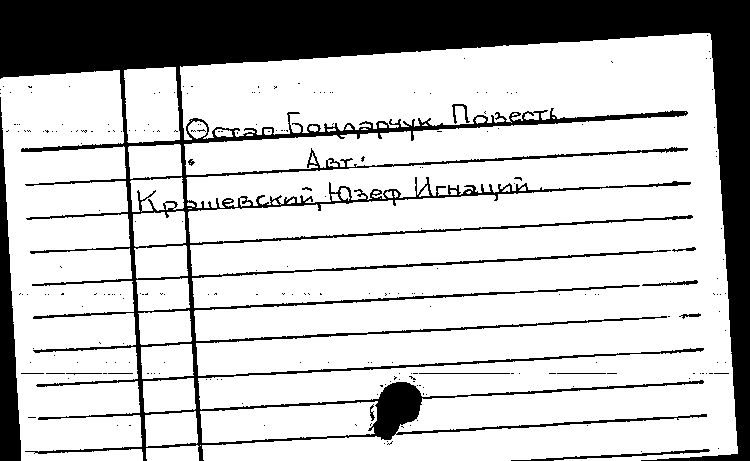 Остап Бондарчук. Повесть.
Авт.:
Крашевский, Юзеф Игнаций.